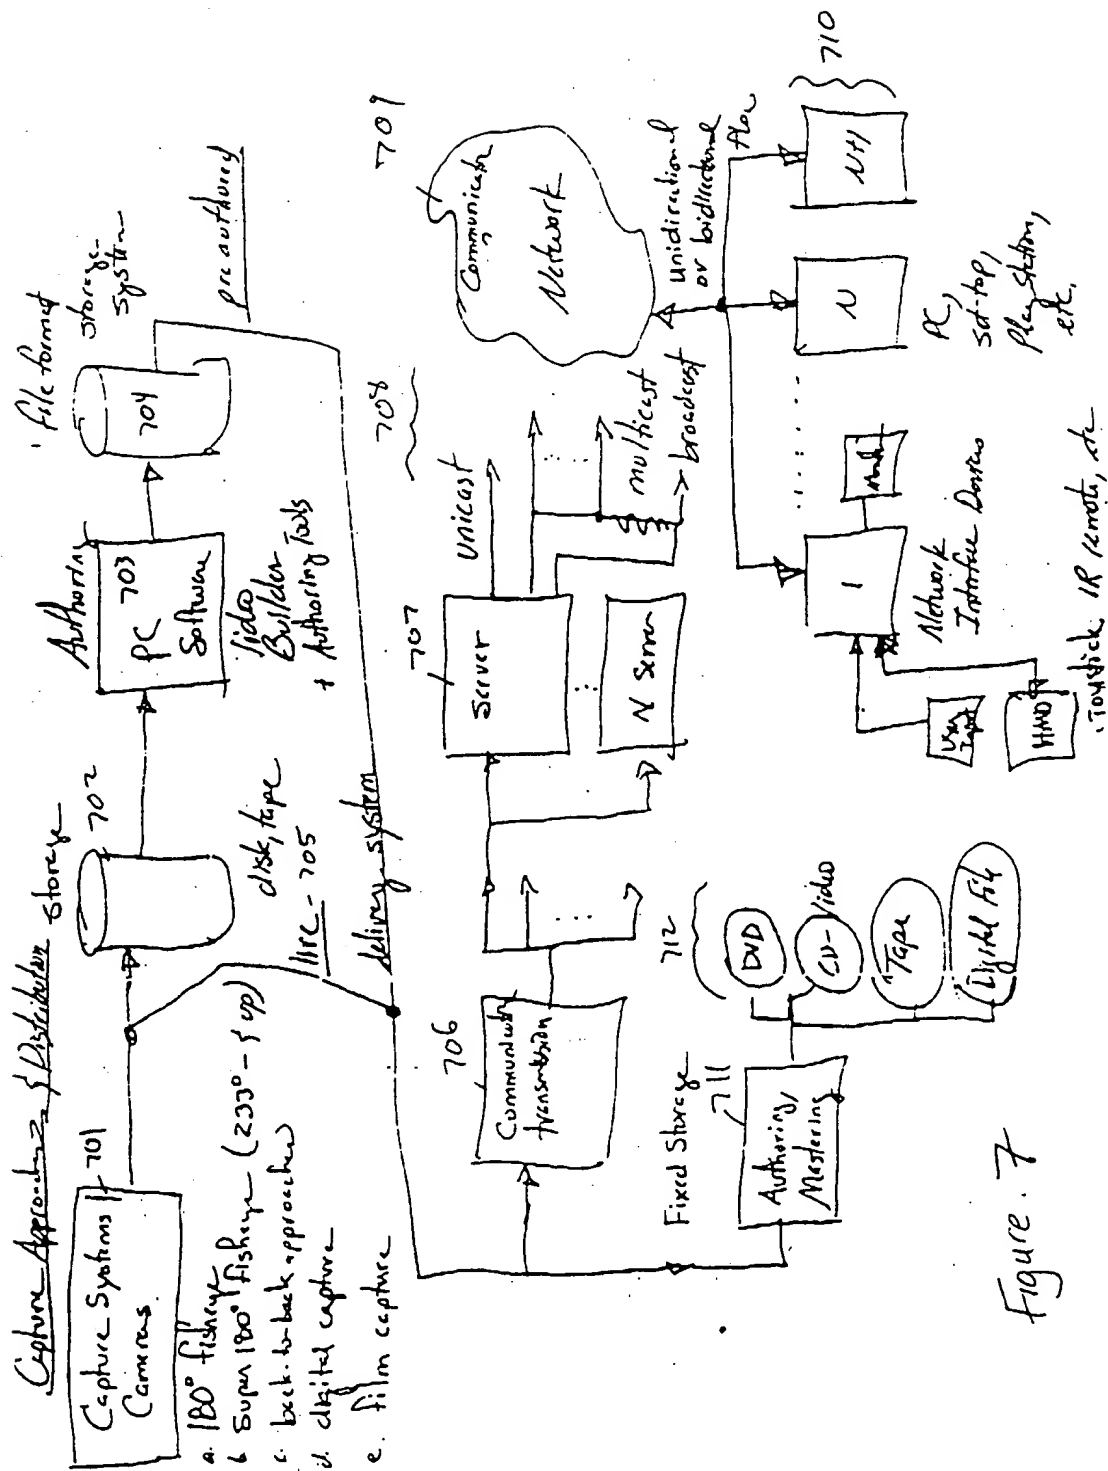 Capture Approaches & Distribution
Capture Systems
Cameras
701
a. 180° fisheye
b Super 180° fisheye (233° - & up)
c. back-to-back approaches
d. digital capture
e. film capture
Storage
702
disk, tape
live - 705
Authoring
PC
703
Software
Video
Builder
+ Authoring Tools
File format
704
storage
system
pre authored
delivery system
706
Communication
transmission
707
Server
N Server
708
unicast
multicast
broadcast
709
Communication
Network
Unidirectional
or bidirectional
flow
710
N+1
N
PC,
set-top,
Playstation,
etc.
1
Network
Interface Devices
User
Input
HMD
Joystick IR remote, etc
Fixed Storage
711
Authoring/
Mastering
712
DVD
CD-Video
Tape
Digital File
Figure. 7